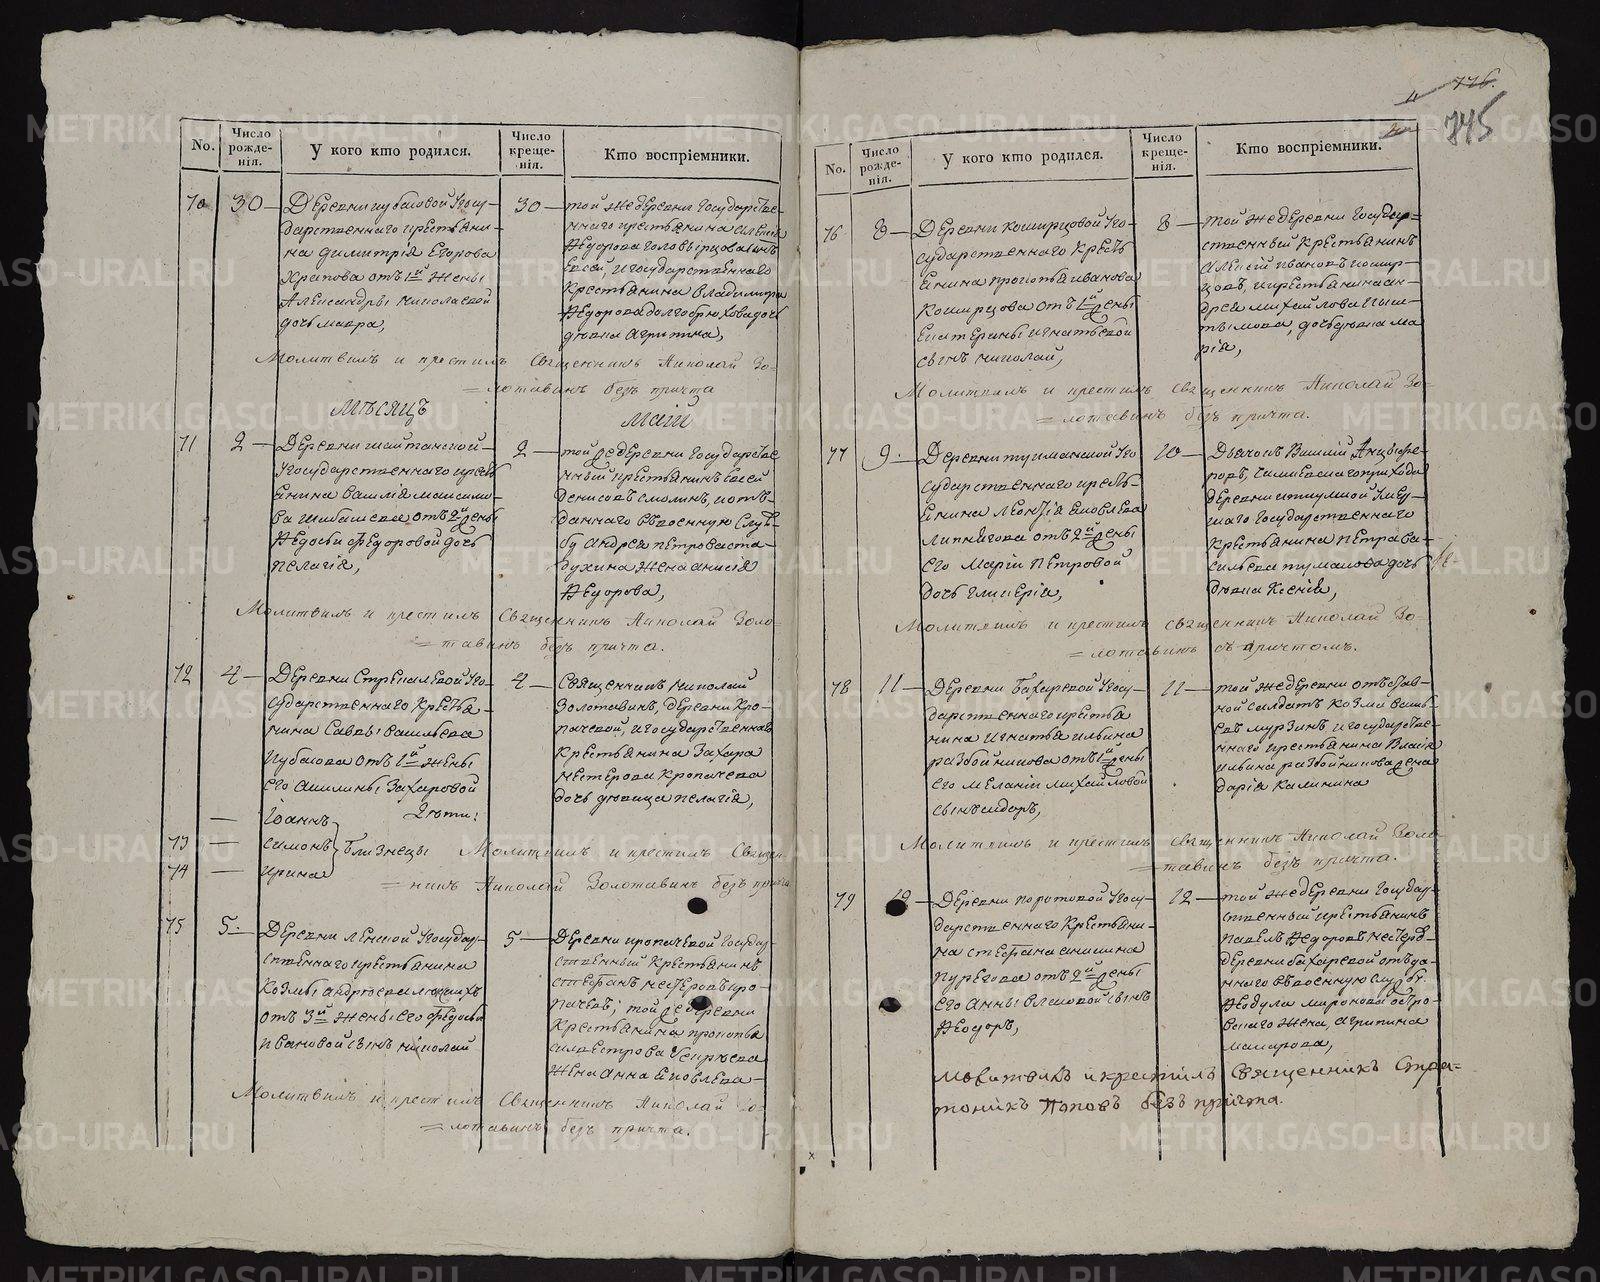 No.
Число рожде-
нія.
У кого кто родился.
Число креще-
нія.
Кто воспріемники.
70
30 —
Деревни Губаловой Госу-
дарственнаго крестьяни-
на Димитрія Егорова
Храпова отъ 1й жены
Александры Николаевой
дочь Мавра,
30 —
той же деревни Государстве-
ннаго крестьянина Алексея
Ѳедорова сынъ
Евсей, и государственнаго
крестьянина Владимира
Ѳедорова Долгобрюхова дочь
девица Агрипина,
Молитвилъ и крестилъ Священникъ Николай Зо-
=лотавинъ безъ причта
Мѣсяцъ
Маій
71
2 —
Деревни Шайтанской
Государственнаго кресть
янина Василія Максимо-
ва отъ 2й жены
Ѳедосьи Федоровой дочь
Пелагія,
2 —
той же деревни Государстве
нный крестьянинъ Евсей
Денисовъ Смолинъ, и отъ-
даннаго въ военную служ-
бу Андрея Петрова Ста-
духина жена Анисія
Ѳедорова,
Молитвилъ и крестилъ Священникъ Николай Золо-
=тавинъ безъ причта.
72
4 —
Деревни Стрекалевой Го-
сударственнаго крестья-
нина Саввы Васильева
Губасова отъ 1й жены
его Акилины Захаровой
Іоаннъ
2 дѣти:
73 — Симонъ
Близнецы
74 — Ирина
4 —
Священникъ Николай
Золотавинъ, деревни Кро-
пачевой, Государственнаго
крестьянина Захара
Нестерова Кропачева
дочь девица Пелагія,
Молитвилъ и крестилъ Священ-
=никъ Николай Золотавинъ безъ причта
75
5.
Деревни Ленской Государ-
ственнаго крестьянина
Козмы Андреева
отъ 3й жены его Федосьи
Ивановой сынъ Николай
5 —
Деревни Кропачевой Государ-
ственный крестьянинъ
Стефанъ Нестеровъ Кро-
пачевъ; той же деревни
крестьянина Прокопья
Силвестрова
жена Анна Яковлева —
Молитвилъ и крестилъ Священникъ Николай Зо-
=лотавинъ безъ причта.
776.
745
No.
Число рожде-
нія.
У кого кто родился.
Число креще-
нія.
Кто воспріемники.
76
8 —
Деревни Коширцовой Го-
сударственнаго кресть
янина Прокопья Иванова
Коширцова отъ 1й жены
Екатерины Игнатьевой
сынъ Николай,
8 —
той же деревни Государ-
ственный крестьянинъ
Алексій Ивановъ Кошир-
цовъ, и крестьянина Ан-
дрея Михайлова
дочь девица Ма
рія,
Молитвилъ и крестилъ Священникъ Николай Зо-
=лотавинъ безъ причта.
77
9. —
Деревни Туманской Го
сударственнаго кресть-
янина Леонтія Яковлева
Липнягова отъ 2й жены
его Маріи Петровой
дочь Гликерія,
10 —
Дьячокъ Василій
прихода
деревни
Государственнаго
крестьянина Петра Ва-
сильева Туманова дочь
девица Ксенія,
Молитвилъ и крестилъ Священникъ Николай Зо-
=лотавинъ съ причтомъ.
78
11 —
Деревни Бахаревой Госу-
дарственнаго крестья
нина Игнатья Ильина
Разбойникова отъ 1й жены
его Меланіи Михайловой
сынъ Исидоръ,
11 —
той же деревни отстав-
ной солдатъ Козма Василь-
евъ Мурзинъ и государстве-
ннаго крестьянина Власія
Ильина Разбойникова жена
Дарія Калинина
Молитвилъ и крестилъ Священникъ Николай Золо-
=тавинъ безъ причта.
79
12 —
Деревни Коротовой Госу-
дарственнаго крестьяни-
на Стефана Аникина
Пурегова отъ 2й жены
его Анны Власовой сынъ
Ѳеодоръ,
12 —
той же деревни Государ-
ственный крестьянинъ
Павелъ Ѳедоровъ
деревни Бахаревой отъда-
ннаго въ военную службу
Ѳедула Миронова
жена, Агрипина
Макарова,
Молитвилъ и крестилъ Священникъ Стра-
тоникъ Поповъ безъ причта.
METRIKI.GASO-URAL.RU